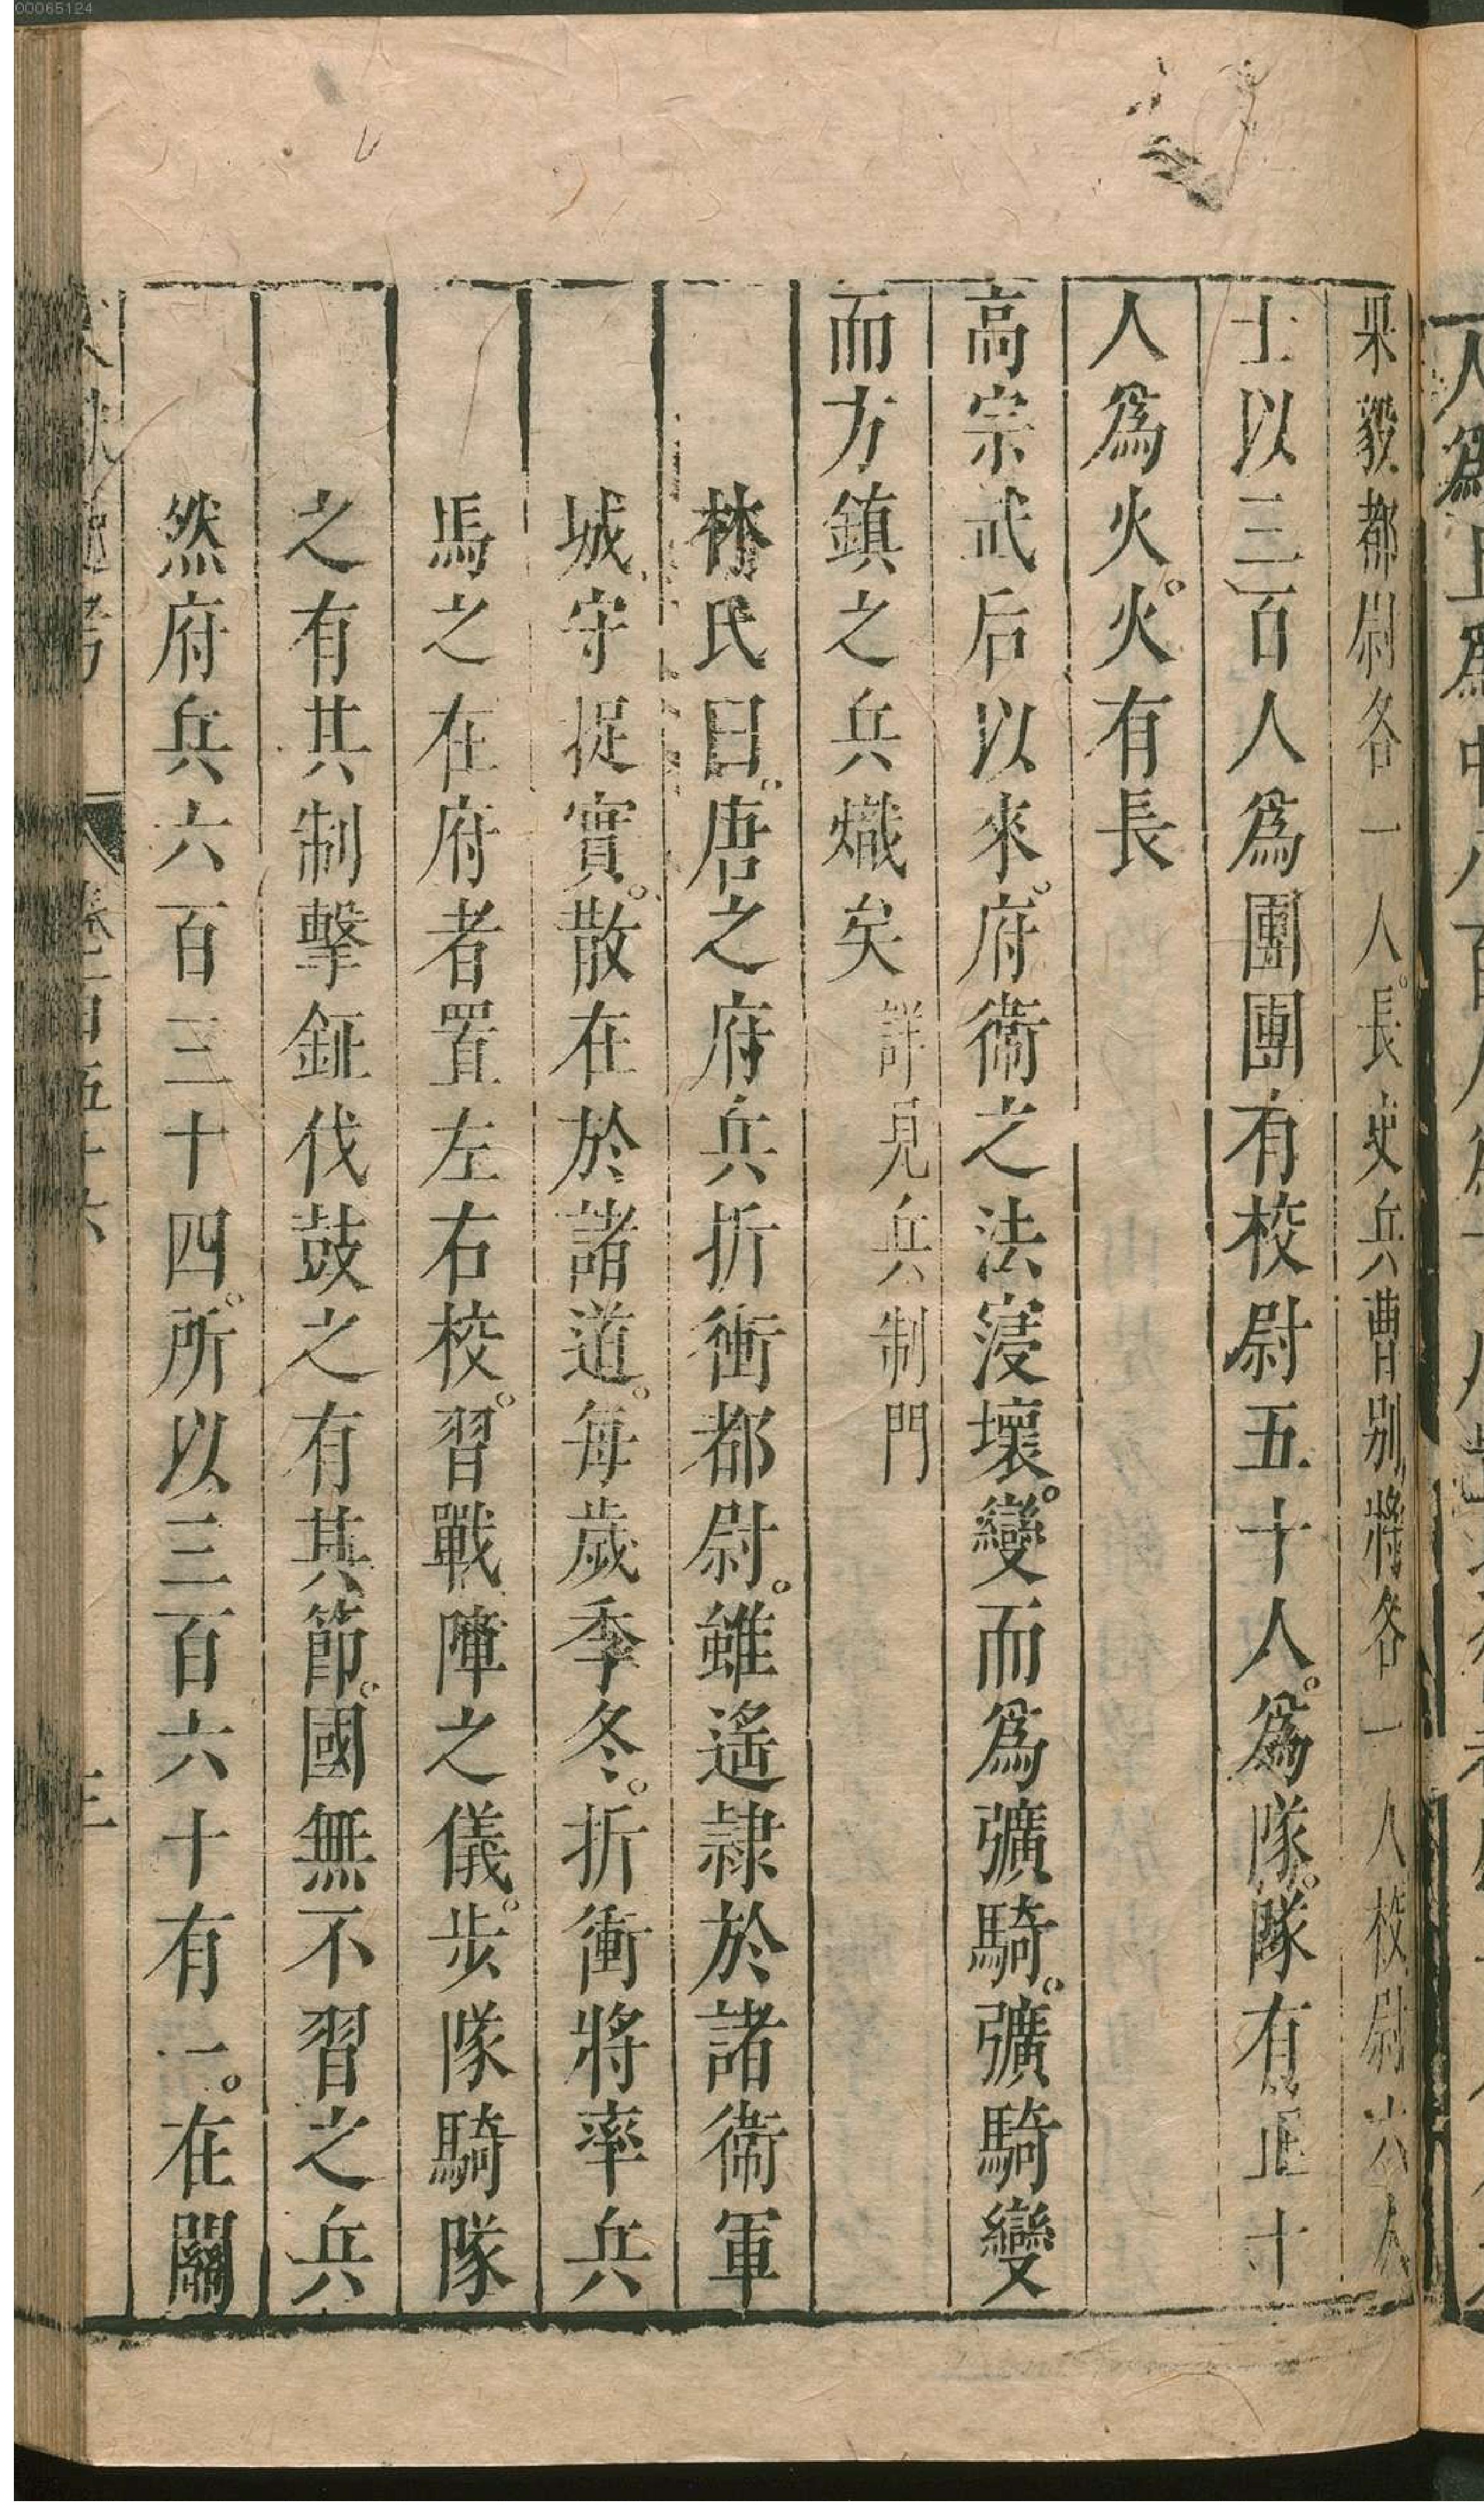 果毅都尉各一人。長史兵曹別將各一人校尉六人
士以三百人爲團團有校尉五十人。爲隊。隊有正十
人爲火。火有長
高宗武后以來。府衞之法寖壞。變而爲彍騎。彍騎變
而方鎮之兵熾矣詳見兵制門
林氏曰。唐之府兵折衝都尉。雖遙隷於諸衞軍
城守捉實。散在於諸道。每歲季冬。折衝將率兵
馬之在府者置左右校。習戰陣之儀。步隊騎隊
之有其制擊鉦伐鼓之有其節。國無不習之兵
然府兵六百三十四。所以三百六十有一。在關
00065124